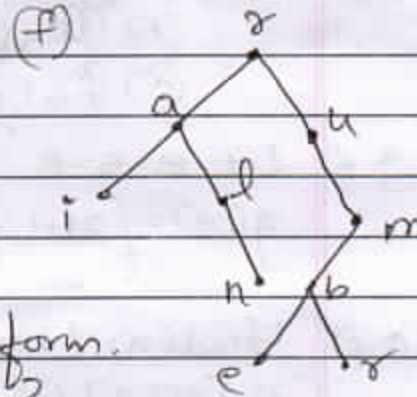 (f)
r
a
u
i
l
m
n
b
form.
e
r